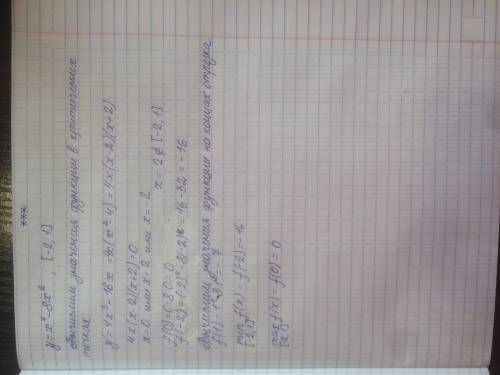 ***
y = x⁴ - 8x² ; [-2, 1]
Вычислим значения функции в критических
точках
y' = 4x³ - 16x = 4x(x² - 4) = 4x(x-2)(x+2)
4x(x-2)(x+2) = 0
x = 0 или x = 2 или x = -2
x = 2 ∉ [-2, 1]
f(0) = 0 - 8·0 = 0
f(-2) = (-2)⁴ - 8(-2)² = 16 - 32 = -16
Вычислим значения функции на концах отрезка
f(1) = 1⁴ - 8·1² = -7
min f(x) = f(-2) = -16
[-2,1]
max f(x) = f(0) = 0
[-2,1]